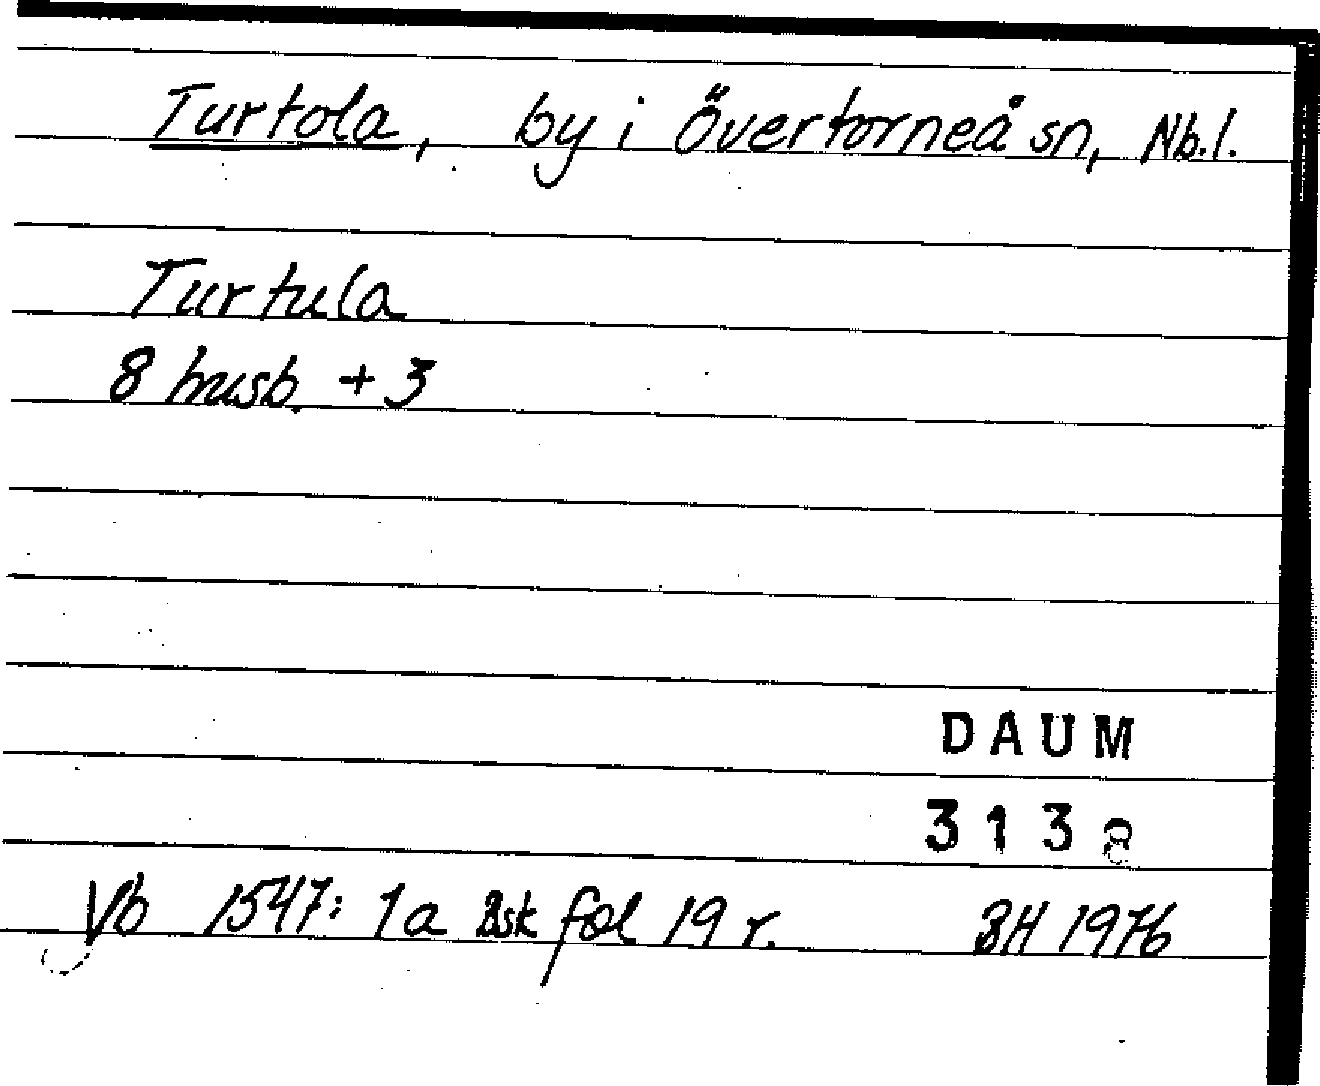 Turtola, by i Övertorneå sn, Nb.l.
Turtula
8 husb. + 3
DAUM
3138
Vb 1547: 1a Bsk fol 19 r. BH 1976